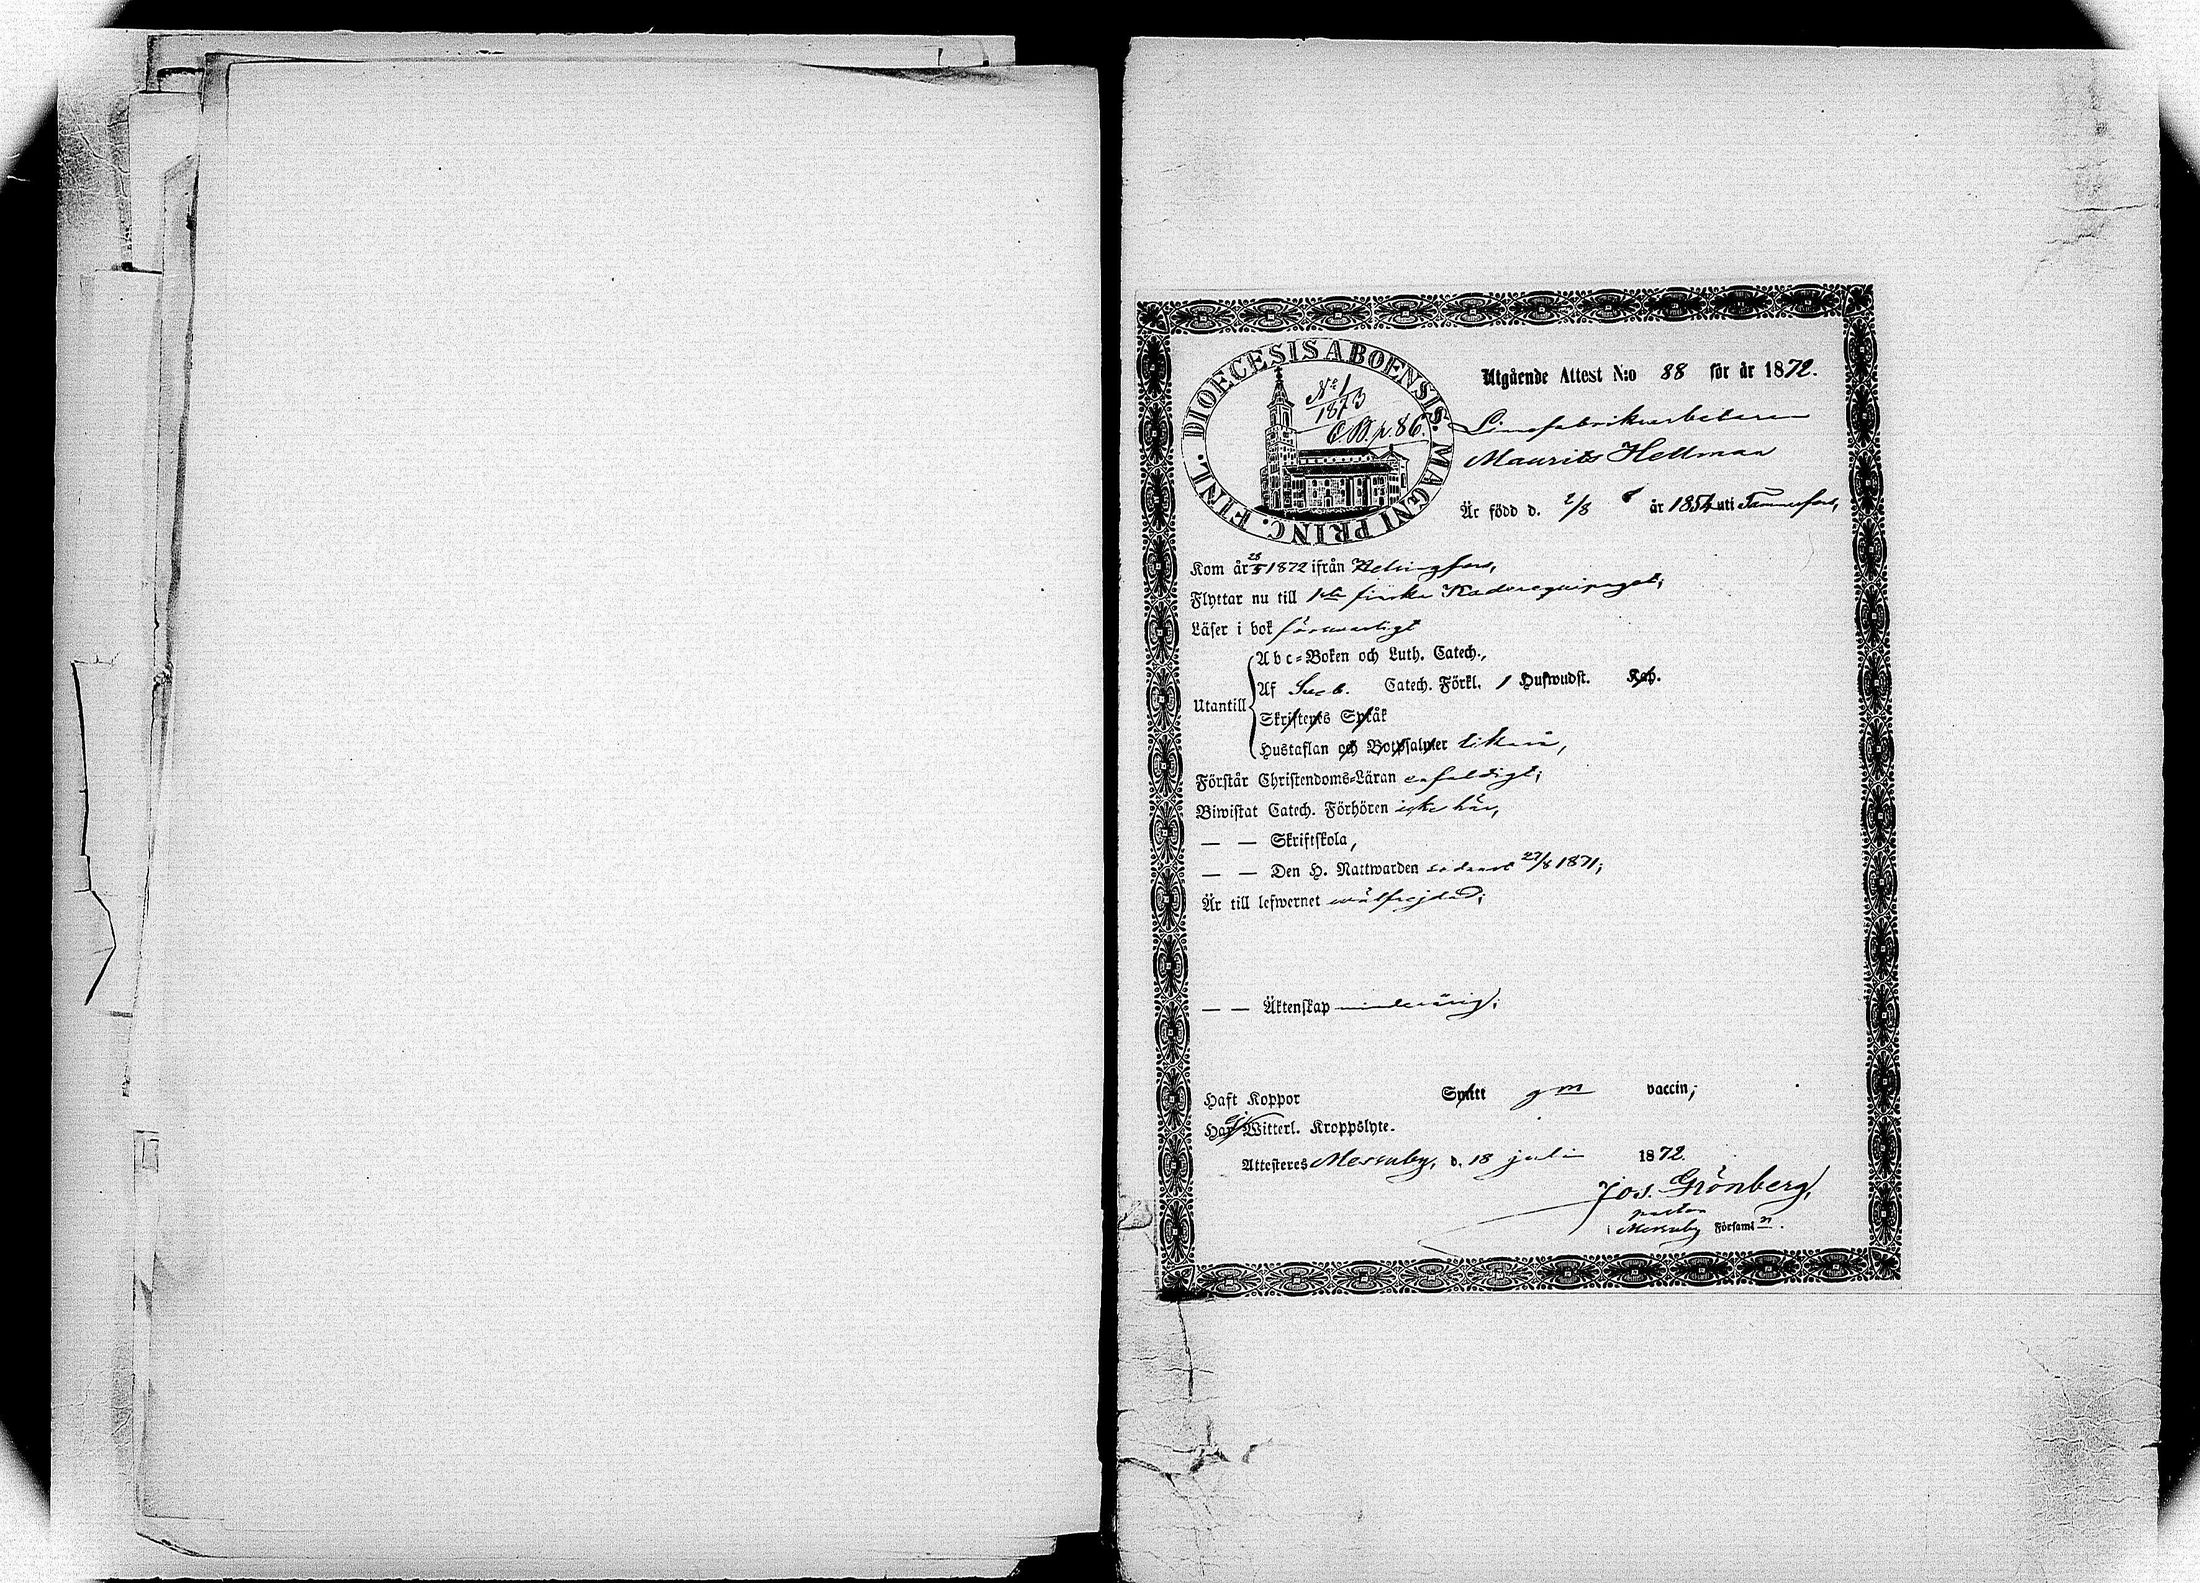 DIOECESIS ABOENSIS. MAGNI PRINC. FINL.
N:o 1
1873
C.B. p. 86.
Utgående Attest N:o 88 för år 1872.
Linnefabriksarbetaren
Maurits Hellman
Är född d. 2/8 år 1854 uti Tammerfors,
Kom år 28/5 1872 ifrån Helsingfors,
Flyttar nu till 1sta finska Kaderequipaget;
Läser i bok försvarligt
Utantill
Abc-Boken och Luth. Catech.,
Af Sveb. Catech. Förkl. 1 Hufwudst. Kap.
Skriftens Språk
Hustaflan och Botpsalmer likaså,
Förstår Christendoms-Läran enfaldigt;
Biwistat Catech. Förhören icke här,
— — Skriftskola,
— — Den H. Nattwarden sedanst 27/8 1871;
Är till lefwernet wälfrejdad;
— — Äktenskap minderårig;
Haft Koppor Smitt gm vaccin;
Har ej Witterl. Kroppslyte.
Attesteres Messuby, d. 18 juli 1872.
Jos. Grönberg,
pastor
i Messuby Församl:n.